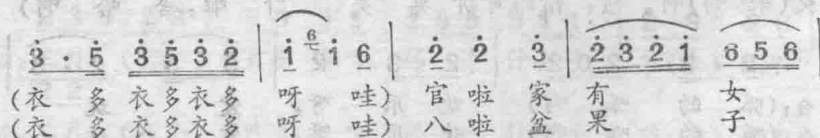 3̇ · 5̇ 3̇ 5̇ 3̇ 2̇ | 1̇ 6 1̇ 6 | 2̇ 2̇ 3̇ | 2̇ 3̇ 2̇ 1̇ 6 5 6
(衣 多 衣多衣多 呀 哇) 官 啦 家 有 女
(衣 多 衣多衣多 呀 哇) 八 啦 盆 果 子